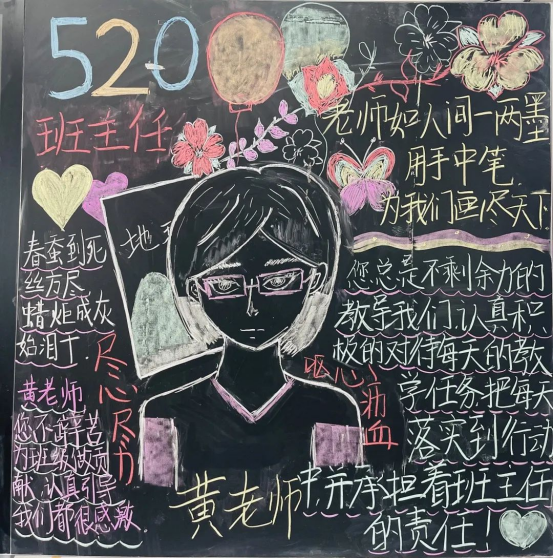 520
班主任
老师如人间一两墨
用手中笔
为我们画尽天下
地
春蚕到死
丝方尽
蜡炬成灰
始泪干.
尽心尽力
呕心沥血
黄老师
您不辞辛苦
为班级做贡
献 认真引导
我们都很感激.
您总是不剩余力的
教导我们,认真积
极的对待每天的教
学任务.把每天
落实到行动
中并承担着班主任
的责任!
黄老师